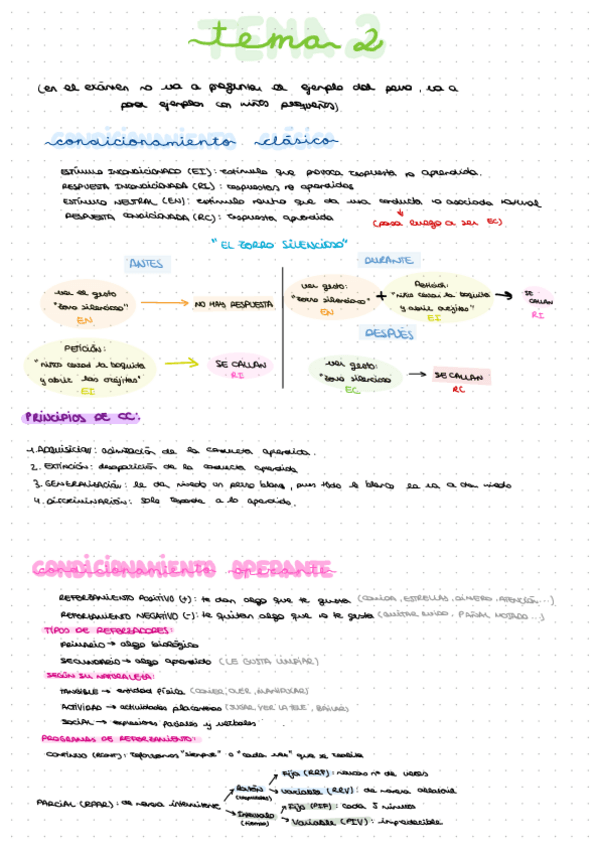 tema 2
(en el exámen no va a preguntar el ejemplo del perro, va a
poner ejemplos con niños pequeños)
condicionamiento clásico
ESTÍMULO INCONDICIONADO (EI): estímulo que provoca respuesta no aprendida.
RESPUESTA INCONDICIONADA (RI): respuestas no aprendidas
ESTÍMULO NEUTRAL (EN): estímulo neutro que da una conducta no asociada
RESPUESTA CONDICIONADA (RC): respuesta aprendida (pasa luego a ser EC)
"EL ZORRO SILENCIOSO"
ANTES
ver el gesto
"zorro silencioso"
EN
NO HAY RESPUESTA
PETICIÓN:
"niños cerrad la boquita
y abrir las orejitas"
EI
SE CALLAN
RI
DURANTE
ver gesto:
"zorro silencioso"
EN
+
PETICIÓN:
"niños cerrar la boquita
y abrir orejitas"
EI
SE
CALLAN
RI
DESPUÉS
ver gesto:
"zorro silencioso
EC
SE CALLAN
RC
PRINCIPIOS DE CC:
1. ADQUISICIÓN: de la conducta aprendida.
2. EXTINCIÓN: desaparición de la conducta aprendida
3. GENERALIZACIÓN: le da miedo un perro blanco, pues todo lo blanco le va a dar miedo
4. DISCRIMINACIÓN: solo responde a lo aprendido.
CONDICIONAMIENTO OPERANTE
REFORZAMIENTO POSITIVO (+): te dan algo que te gusta (COMIDA, ESTRELLAS, DINERO, ATENCIÓN...)
REFORZAMIENTO NEGATIVO (-): te quitan algo que no te gusta (QUITAR RUIDO, PAÑAL MOJADO...)
TIPOS DE REFORZADORES:
PRIMARIO → algo biológico
SECUNDARIO → algo aprendido (LE GUSTA LIMPIAR)
SEGÚN SU NATURALEZA:
TANGIBLE → entidad física (COMER, OLER, MANIPULAR)
ACTIVIDAD → actividades placenteras (JUGAR, VER LA TELE, BAILAR)
SOCIAL → expresiones faciales y verbales
PROGRAMAS DE REFORZAMIENTO:
CONTÍNUO (RCONT): reforzamos "siempre" o "cada vez" que se
PARCIAL (RPAR): de manera intermitente
Razón
(respuestas)
Fija (RRF): mismo nº de veces
Variable (RRV): de manera aleatoria
Intervalo
(tiempo)
Fijo (PIF): cada 5 minutos
Variable (PIV): impredecible